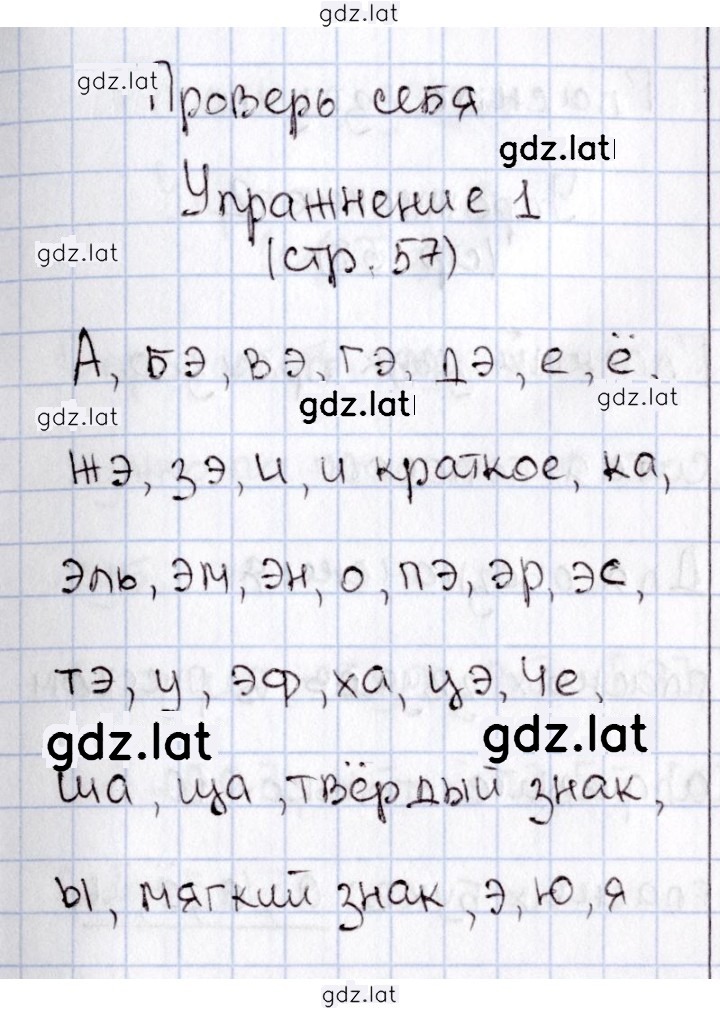 gdz.lat
gdz.lat
Проверь себя
gdz.lat
Упражнение 1
gdz.lat
(стр. 57)
А, бэ, вэ, гэ, дэ, е, ё,
gdz.lat
gdz.lat
gdz.lat
жэ, зэ, и, и краткое, ка,
эль, эм, эн, о, пэ, эр, эс,
тэ, у, эф, ха, цэ, че,
gdz.lat
gdz.lat
ша, ща, твёрдый знак,
ы, мягкий знак, э, ю, я
gdz.lat